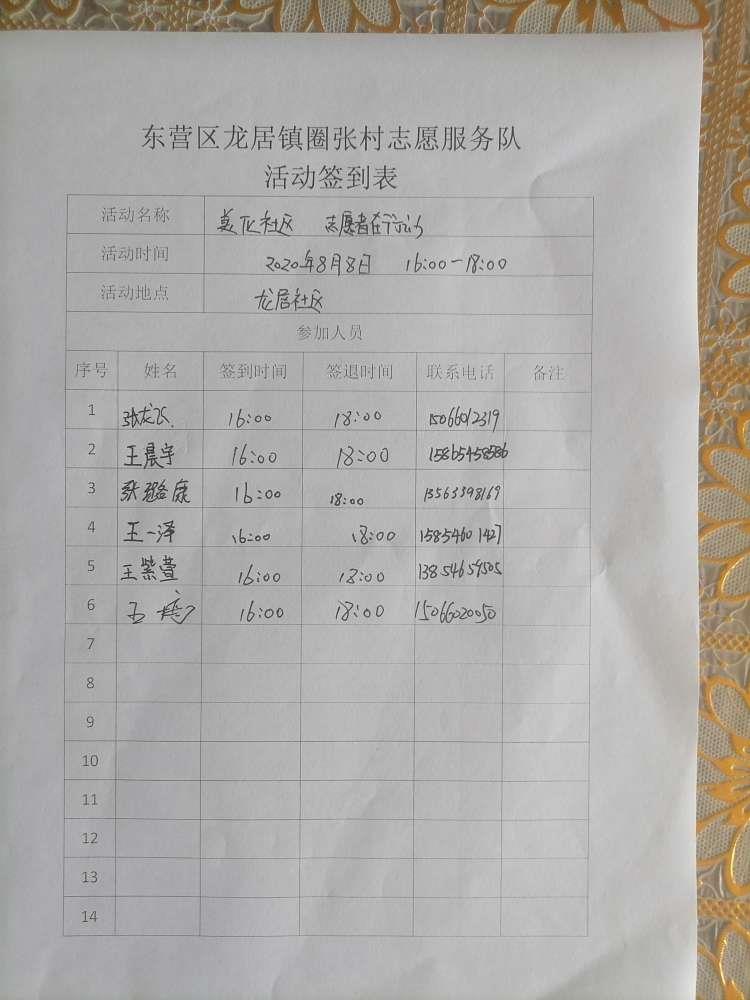 东营区龙居镇圈张村志愿服务队
活动签到表
活动名称 美化社区 志愿者在行动
活动时间 2020年8月8日 16:00-18:00
活动地点 龙居社区
参加人员
序号 姓名 签到时间 签退时间 联系电话 备注
1 张龙飞 16:00 18:00 15066012319
2 王晨宇 16:00 18:00 15865458586
3 张璐康 16:00 18:00 13563398169
4 王一泽 16:00 18:00 15854601427
5 王紫萱 16:00 18:00 13854659505
6 王 16:00 18:00 15066020050
7
8
9
10
11
12
13
14